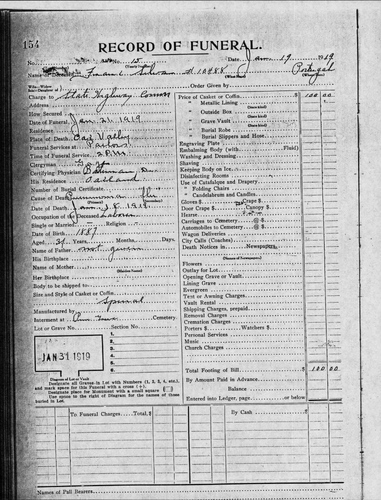 154
RECORD OF FUNERAL.
No. 15 Date, Jan. 19 1919
Name of Deceased Silva Portugal
Order Given by
Charge to State Highway Comm
Address
How Secured
Date of Funeral Jan. 21, 1919
Residence
Place of Death Valley
Funeral Services at Parlors
Time of Funeral Service 2 PM
Clergyman
Certifying Physician
His Residence Oakland
Number of Burial Certificate
Cause of Death Pneumonia flu
Date of Death Jan. 18, 1919
Occupation of the Deceased Laborer
Single or Married Religion
Date of Birth 1887
Aged 31 Years Months Days
Name of Father not given
His Birthplace
Name of Mother
Her Birthplace
Body to be shipped to
Size and Style of Casket or Coffin
Special
Manufactured by
Interment at Cemetery
Lot or Grave No. Section No.
JAN 31 1919
1.
2.
3.
4.
5.
6.
Diagram of Lot or Vault
Designate all Graves in Lot with Numbers (1, 2, 3, 4, etc.),
and mark space for this Funeral with a cross (+).
Designate place for Monument with a small square
Use space to right of Diagram for the names of those
buried in Lot.
Price of Casket or Coffin 100 00
" Metallic Lining
" Outside Box
" Grave Vault
" Burial Robe
" Burial Slippers and Hose
Engraving Plate
Embalming Body (with Fluid)
Washing and Dressing
Shaving
Keeping Body on Ice
Disinfecting Rooms
Use of Catafalque and Drapery
" Folding Chairs
" Candelabrum and Candles
Gloves $ Crape $
Door Crape $ Canopy $
Hearse
Carriages to Cemetery @ $
Automobiles to Cemetery @ $
Wagon Deliveries
City Calls (Coaches)
Death Notices in Newspapers
Flowers
Outlay for Lot
Opening Grave or Vault
Lining Grave
Evergreen
Tent or Awning Charges
Vault Rental
Shipping Charges, prepaid
Removal Charges
Cremation Charges
Porters $ Watchers $
Personal Services
Music
Church Charges
Total Footing of Bill $ 100 00
By Amount Paid in Advance
Balance
Entered into Ledger, page or below
To Funeral Charges Total, $
By Cash $
Names of Pall Bearers